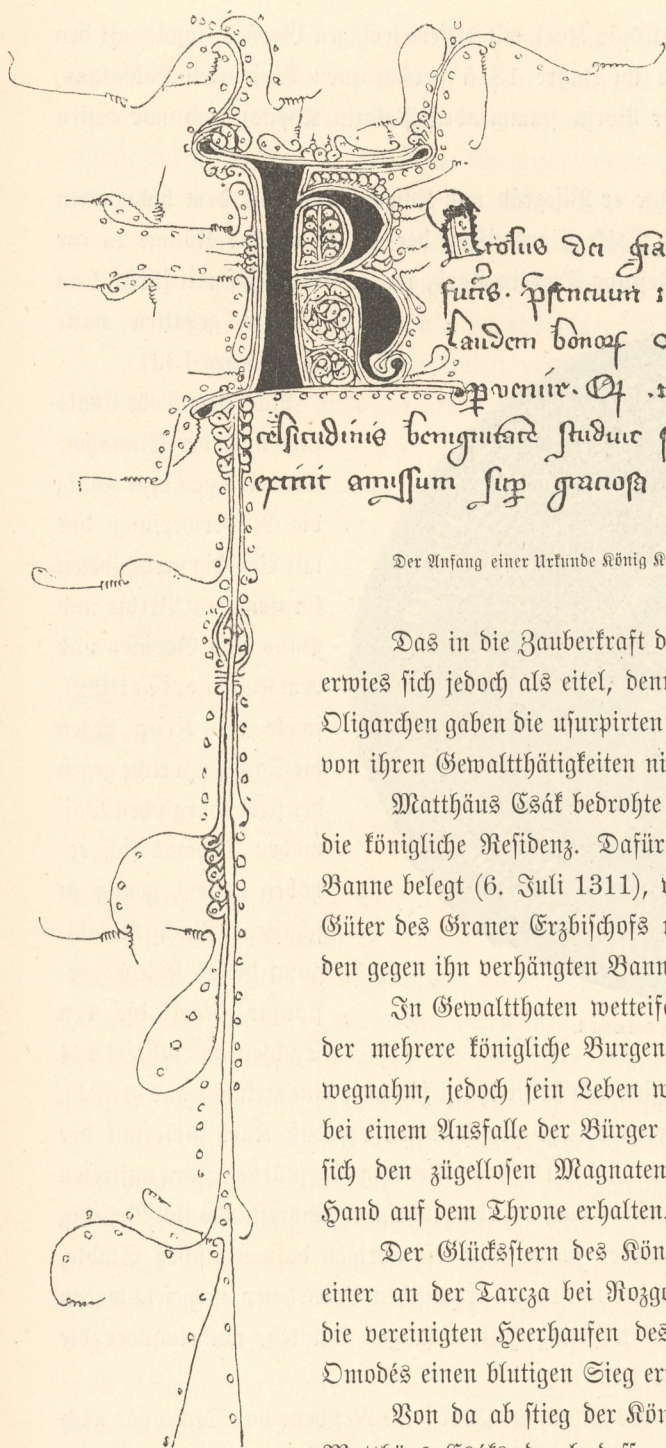 K
Karolus dei gra
futris. psencium
laudem bonor
pvenire. Et
celsitudinis benignitate studuit
extitit amissum sup graciosa
Der Anfang einer Urkunde König K
Das in die Zauberkraft d
erwies sich jedoch als eitel, denn
Oligarchen gaben die usurpirten
von ihren Gewaltthätigkeiten ni
Matthäus Csák bedrohte
die königliche Residenz. Dafür
Banne belegt (6. Juli 1311), w
Güter des Graner Erzbischofs
den gegen ihn verhängten Bann
In Gewaltthaten wetteife
der mehrere königliche Burgen
wegnahm, jedoch sein Leben w
bei einem Ausfalle der Bürger
sich den zügellosen Magnaten
Hand auf dem Throne erhalten.
Der Glücksstern des Kön
einer an der Tarcza bei Rozgo
die vereinigten Heerhaufen des
Omodés einen blutigen Sieg er
Von da ab stieg der Kön